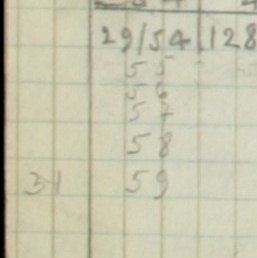 29/54 128
55
56
57
58
31 59